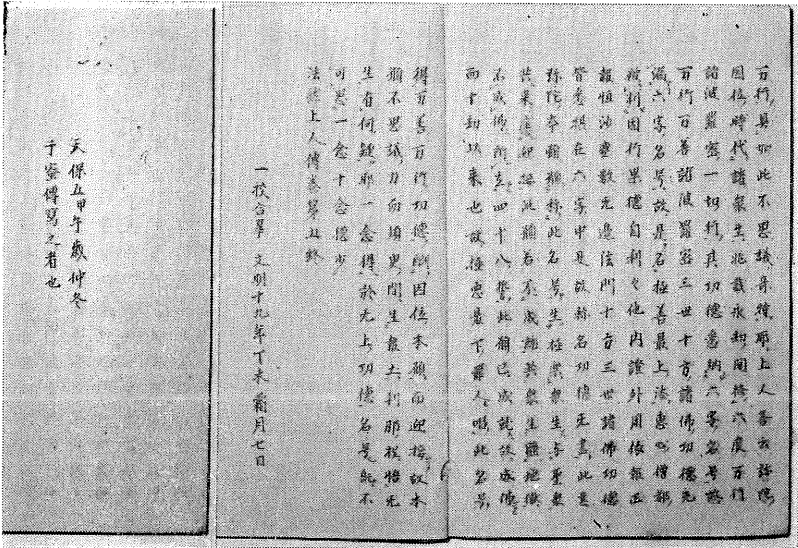 万行具如此不思議奇特耶上人答云弥陀
因位時代諸衆生兆載永劫間修六度万行
諸波羅密一切行其功德悉納六字名号
万行万善諸波羅密三世十方諸佛功德无
滿六字名号故是名極善最上法惠心僧都
因行果德自利々他内證外用依報正
報恒沙塵数无邊法門十方三世諸佛功德
皆悉摂在六字中是故称名功德无盡此意
弥陀本願称此名号生極楽衆生
迎接此願若不成就共衆生雖地獄
不成佛所立四十八誓此願已成就故成佛
而十劫以来也故極悪最下罪人唱此名号
得万善万行功德酬因位本願而迎接故本
願不思議力而須臾間生報土刹那授悟无
生有何疑耶一念得於无上功德名号既不
可思一念十念多少
法然上人傳巻第五終
一校合畢 文明十九年丁未霜月七日
天保五甲午歳仲冬
傳寫之者也